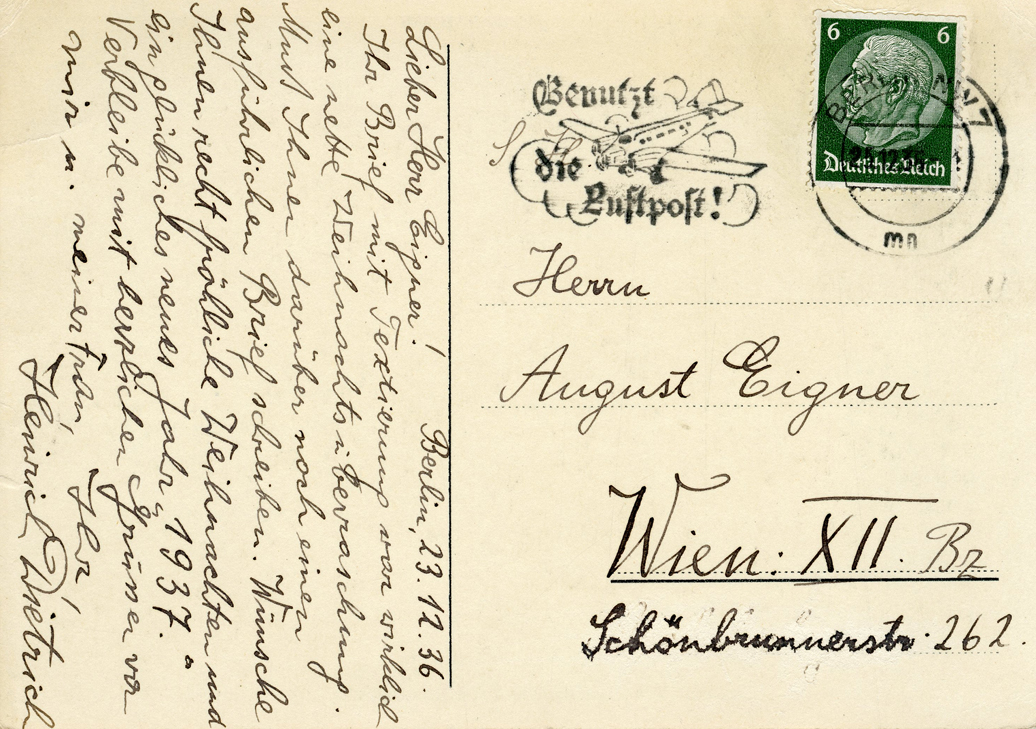 Lieber Herr Eigner!
Berlin, 23.12.36.
Ihr Brief mit Textierung war wirklich
eine nette Weihnachtsüberraschung.
Muss Ihnen darüber noch einen
ausführlichen Brief schreiben. Wünsche
Ihnen recht fröhliche Weihnachten und
ein glückliches neues Jahr „1937."
Verbleibe mit herzlichen Grüssen von
mir u. meiner
Ihr
Heinrich Dietrich
Benutzt
die
Luftpost!
6 6
Deutsches Reich
BERLIN NW 7
mn
Herrn
August Eigner
Wien: XII. Bz
Schönbrunnerstr. 262.